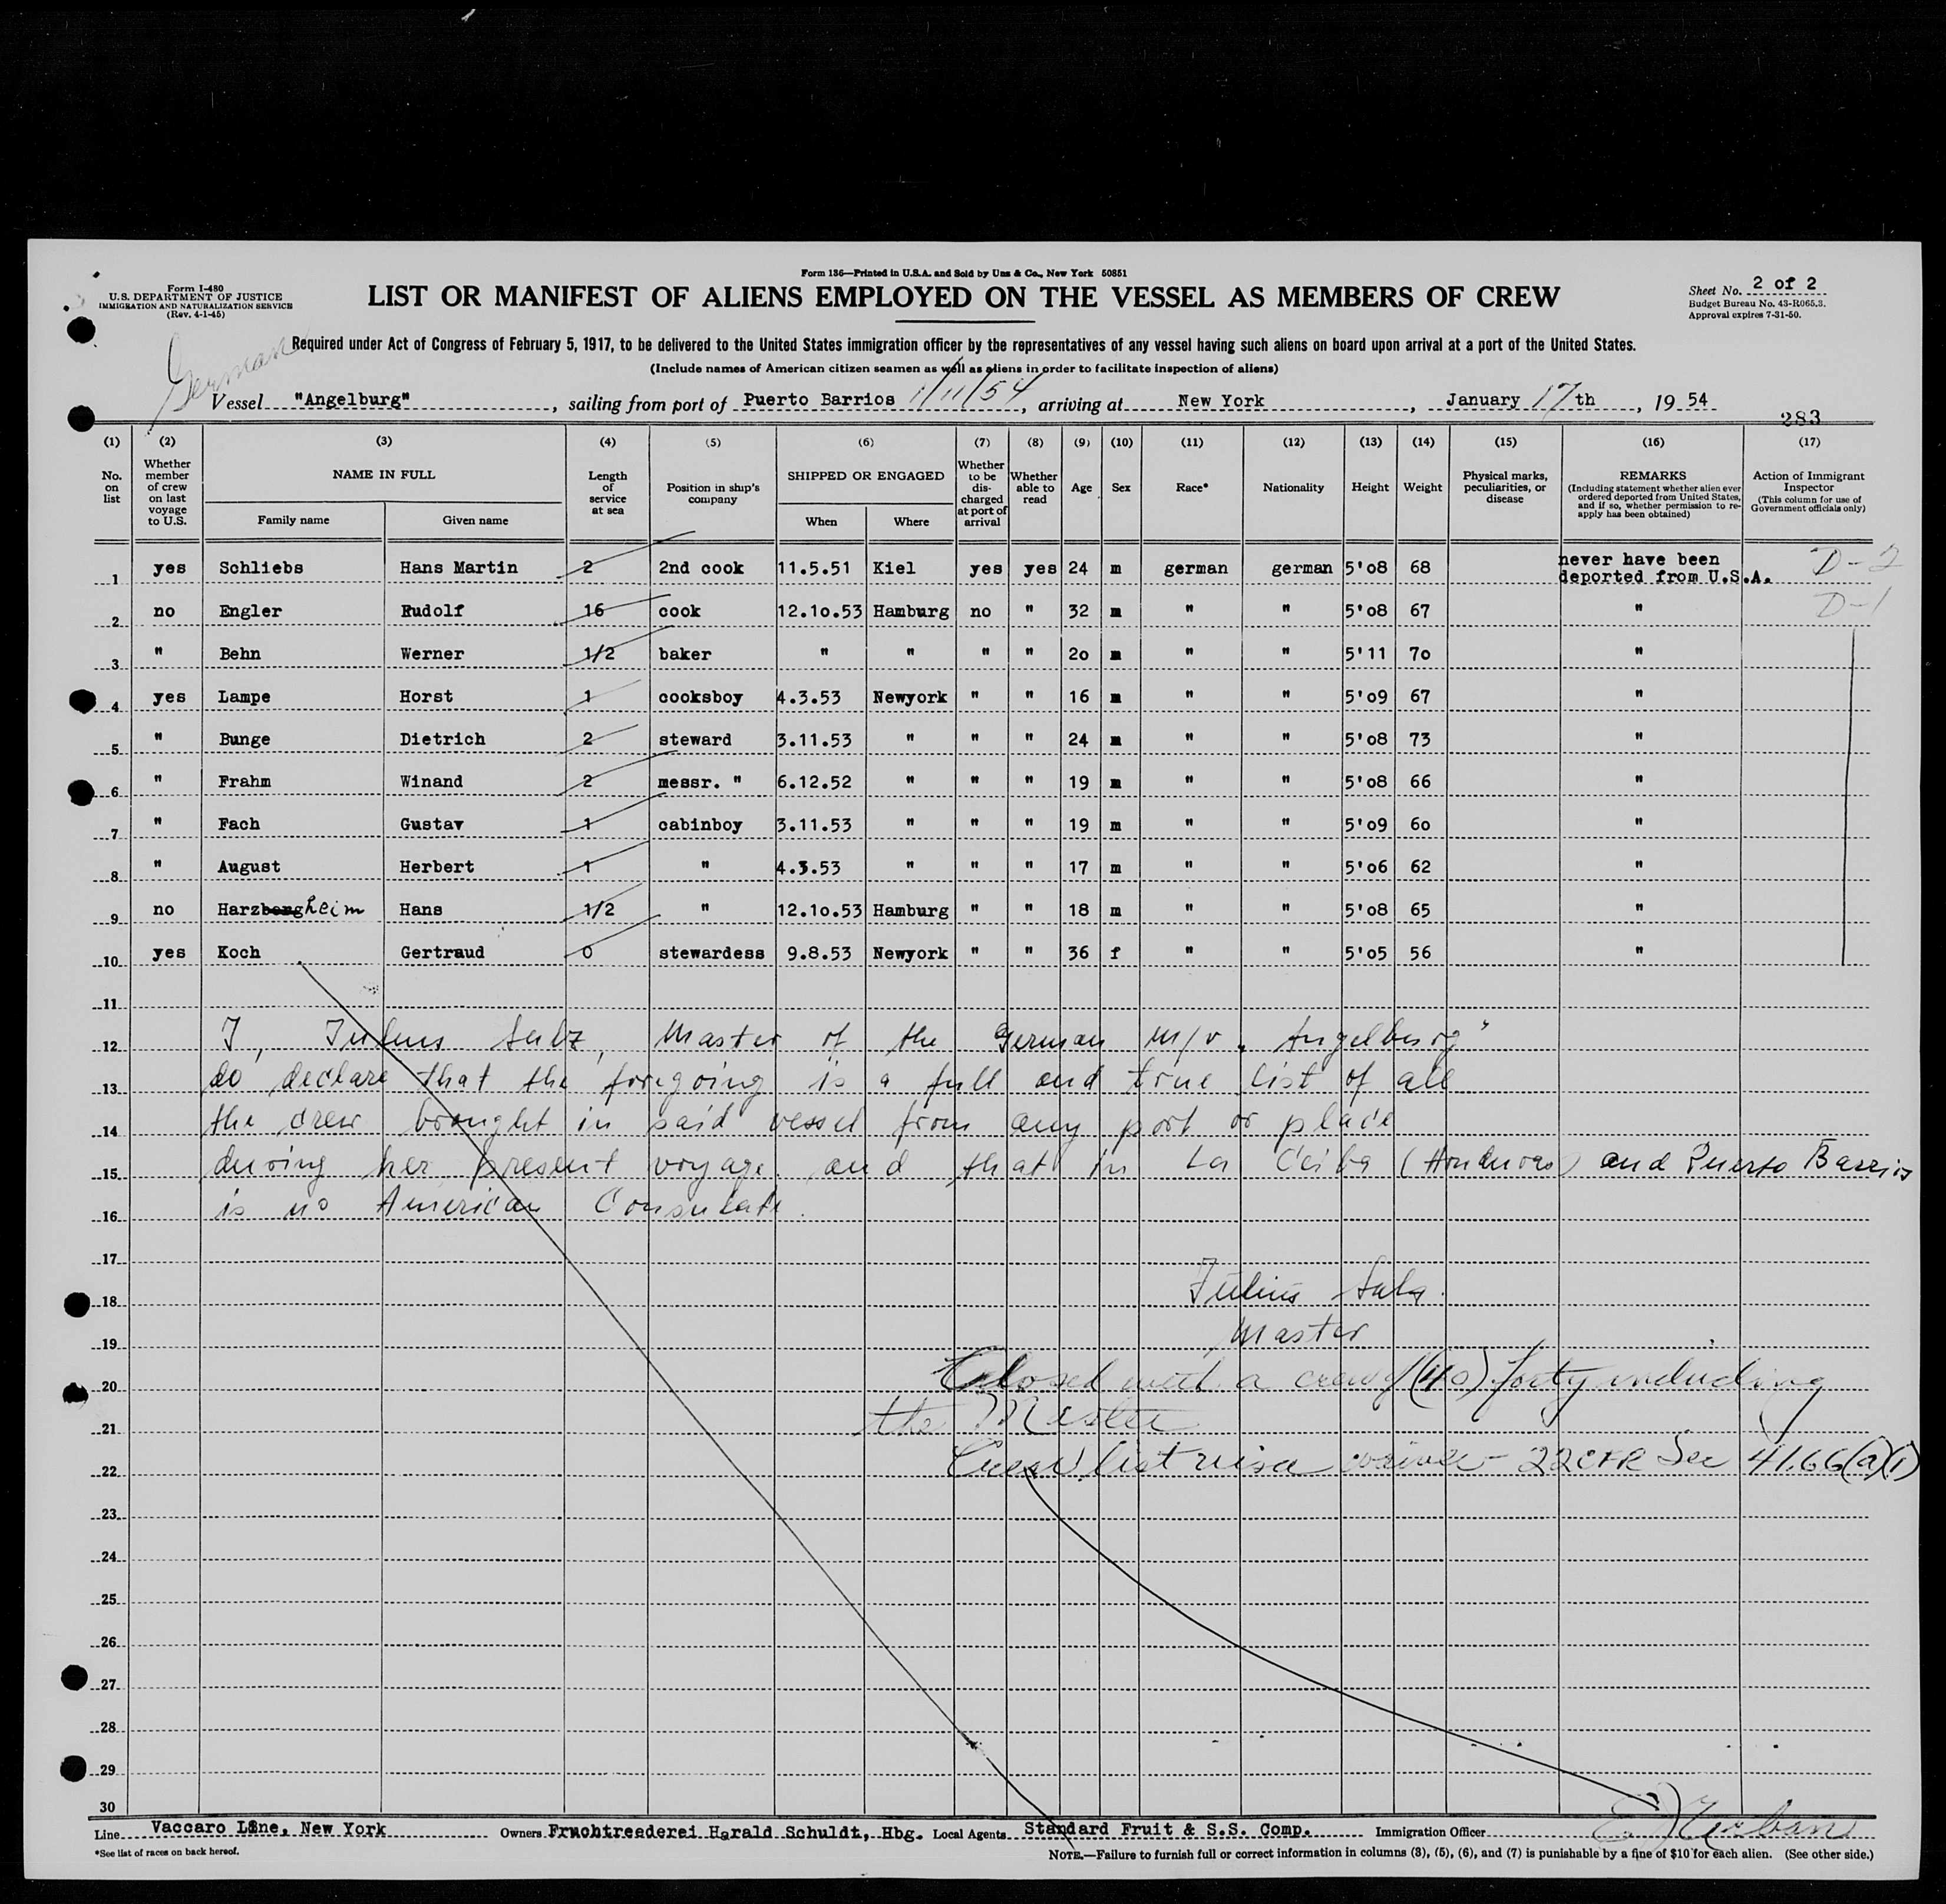 Form 136—Printed in U.S.A. and Sold by Unz & Co., New York 50851
Form I-480
U.S. DEPARTMENT OF JUSTICE
IMMIGRATION AND NATURALIZATION SERVICE
(Rev. 4-1-45)
LIST OR MANIFEST OF ALIENS EMPLOYED ON THE VESSEL AS MEMBERS OF CREW
Sheet No. 2 of 2
Budget Bureau No. 43-R065.3.
Approval expires 7-31-50.
German
Required under Act of Congress of February 5, 1917, to be delivered to the United States immigration officer by the representatives of any vessel having such aliens on board upon arrival at a port of the United States.
(Include names of American citizen seamen as well as aliens in order to facilitate inspection of aliens)
Vessel "Angelburg", sailing from port of Puerto Barrios 1/11/54, arriving at New York, January 17th, 19 54
283
(1) (2) (3) (4) (5) (6) (7) (8) (9) (10) (11) (12) (13) (14) (15) (16) (17)
No. on list
Whether member of crew on last voyage to U.S.
NAME IN FULL
Family name Given name
Length of service at sea
Position in ship's company
SHIPPED OR ENGAGED
When Where
Whether to be discharged at port of arrival
Whether able to read
Age
Sex
Race*
Nationality
Height
Weight
Physical marks, peculiarities, or disease
REMARKS
(Including statement whether alien ever ordered deported from United States, and if so, whether permission to reapply has been obtained)
Action of Immigrant Inspector
(This column for use of Government officials only)
1 yes Schliebs Hans Martin 2 2nd cook 11.5.51 Kiel yes yes 24 m german german 5'o8 68 never have been deported from U.S.A. D-2
2 no Engler Rudolf 16 cook 12.1o.53 Hamburg no " 32 m " " 5'o8 67 " D-1
3 " Behn Werner 1/2 baker " " " " 2o m " " 5'11 7o "
4 yes Lampe Horst 1 cooksboy 4.3.53 Newyork " " 16 m " " 5'o9 67 "
5 " Bunge Dietrich 2 steward 3.11.53 " " " 24 m " " 5'o8 73 "
6 " Frahm Winand 2 messr. " 6.12.52 " " " 19 m " " 5'o8 66 "
7 " Fach Gustav 1 cabinboy 3.11.53 " " " 19 m " " 5'o9 6o "
8 " August Herbert 1 " 4.3.53 " " " 17 m " " 5'o6 62 "
9 no Harzbergheim Hans 1/2 " 12.1o.53 Hamburg " " 18 m " " 5'o8 65 "
10 yes Koch Gertraud 0 stewardess 9.8.53 Newyork " " 36 f " " 5'o5 56 "
11
12 I, Julius Sulz, Master of the German m/v "Angelburg"
13 do declare that the foregoing is a full and true list of all
14 the crew brought in said vessel from any port or place
15 during her present voyage. and that in La Ceiba (Honduras) and Puerto Barrios
16 is no American Consulate.
17
18 Julius
19 Master
20 Closed with a crew of (40) forty including
21 the Master
22 Crew list visa waiver - 22 CFR Sec 41.66(a)(1)
23
24
25
26
27
28
29
30
Line Vaccaro Line, New York Owners Fruchtreederei Harald Schuldt, Hbg. Local Agents Standard Fruit & S.S. Comp. Immigration Officer
*See list of races on back hereof.
NOTE.—Failure to furnish full or correct information in columns (3), (5), (6), and (7) is punishable by a fine of $10 for each alien. (See other side.)